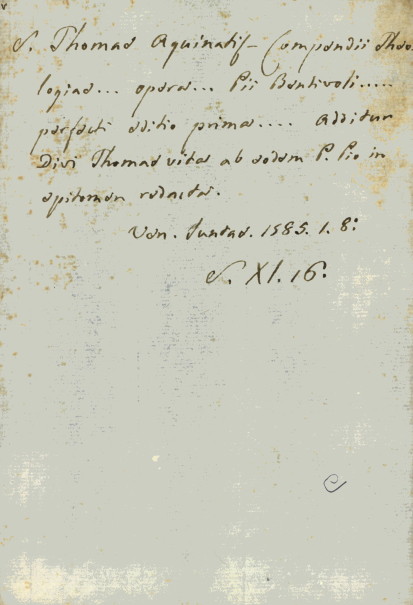 S. Thomae Aquinatis - Compendii Theo
logiae... opera... Pii Bentivoli.....
perfecti editio prima.... Additur
Divi Thomae vita ab eodem P. Pio in
epitomen redacta.
Ven. Juntas. 1585. 1. 8:
S. XI. 16: